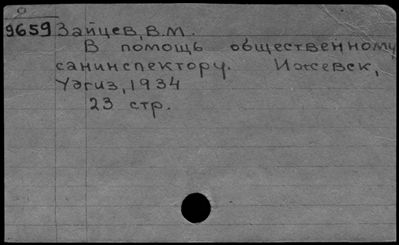 9659 Зайцев, В.М.
В помощь общественному
санинспектору. Ижевск,
Удгиз, 1934
23 стр.